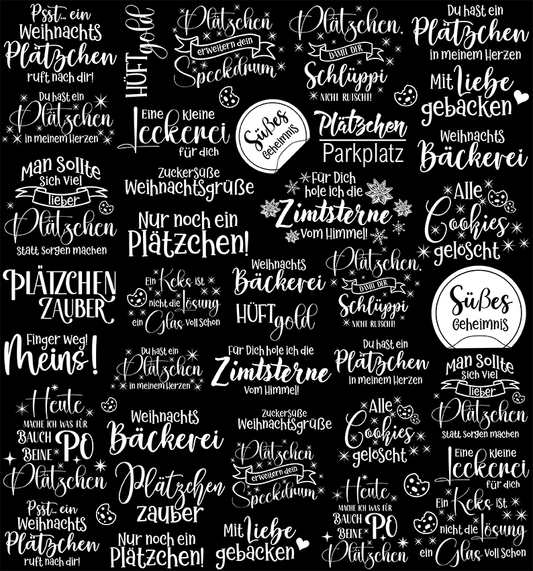 Psst... ein
Weihnachts
Plätzchen
ruft nach dir!
HÜFT
gold
Plätzchen
erweitern dein
Speckdrum
Plätzchen,
DAMIT DER
Schlüppi
NICHT RUTSCHT!
Du hast ein
Plätzchen
in meinem Herzen
Mit Liebe
gebacken
Du hast ein
Plätzchen
in meinem Herzen
Eine kleine
Leckerei
für dich
Süßes
Geheimnis
Plätzchen
Parkplatz
Weihnachts
Bäckerei
Man Sollte
sich viel
lieber
Plätzchen
statt Sorgen machen
Zuckersüße
Weihnachtsgrüße
Für Dich
hole ich die
Zimtsterne
vom Himmel!
Alle
Cookies
gelöscht
Nur noch ein
Plätzchen!
PLÄTZCHEN
ZAUBER
Ein Keks ist
nicht die Lösung
ein Glas voll Schon
Weihnachts
Bäckerei
HÜFT
gold
Plätzchen,
DAMIT DER
Schlüppi
NICHT RUTSCHT!
Süßes
Geheimnis
Finger Weg!
Meins!
Du hast ein
Plätzchen
in meinem Herzen
Für Dich hole ich die
Zimtsterne
vom Himmel!
Du hast ein
Plätzchen
in meinem Herzen
Man Sollte
sich viel
lieber
Plätzchen
statt Sorgen machen
Heute
MACHE ICH WAS FÜR
BAUCH
BEINE
PO
Plätzchen
Weihnachts
Bäckerei
Zuckersüße
Weihnachtsgrüße
Plätzchen
erweitern dein
Speckdrum
Alle
Cookies
gelöscht
Eine kleine
Leckerei
für dich
Psst... ein
Weihnachts
Plätzchen
ruft nach dir!
Plätzchen
zauber
Nur noch ein
Plätzchen!
Mit Liebe
gebacken
Heute
MACHE ICH WAS FÜR
BAUCH
BEINE
PO
Plätzchen
Ein Keks ist
nicht die Lösung
ein Glas voll Schon